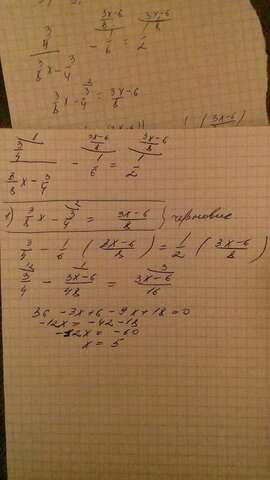 3/4 / (3/8 x - 3/4) - 1/6 = 1/2
3/8 x - 3/4 = (3x-6)/8
3/4 / (3/8 x - 3/4) - 1/6 = 1/2
1) 3/8 x - 3/4 = (3x-6)/8 } черновик
3/4 - 1/6 ( (3x-6)/8 ) = 1/2 ( (3x-6)/8 )
3/4 - (3x-6)/48 = (3x-6)/16
36 - 3x + 6 - 9x + 18 = 0
-12x = -42 - 18
-12x = -60
x = 5